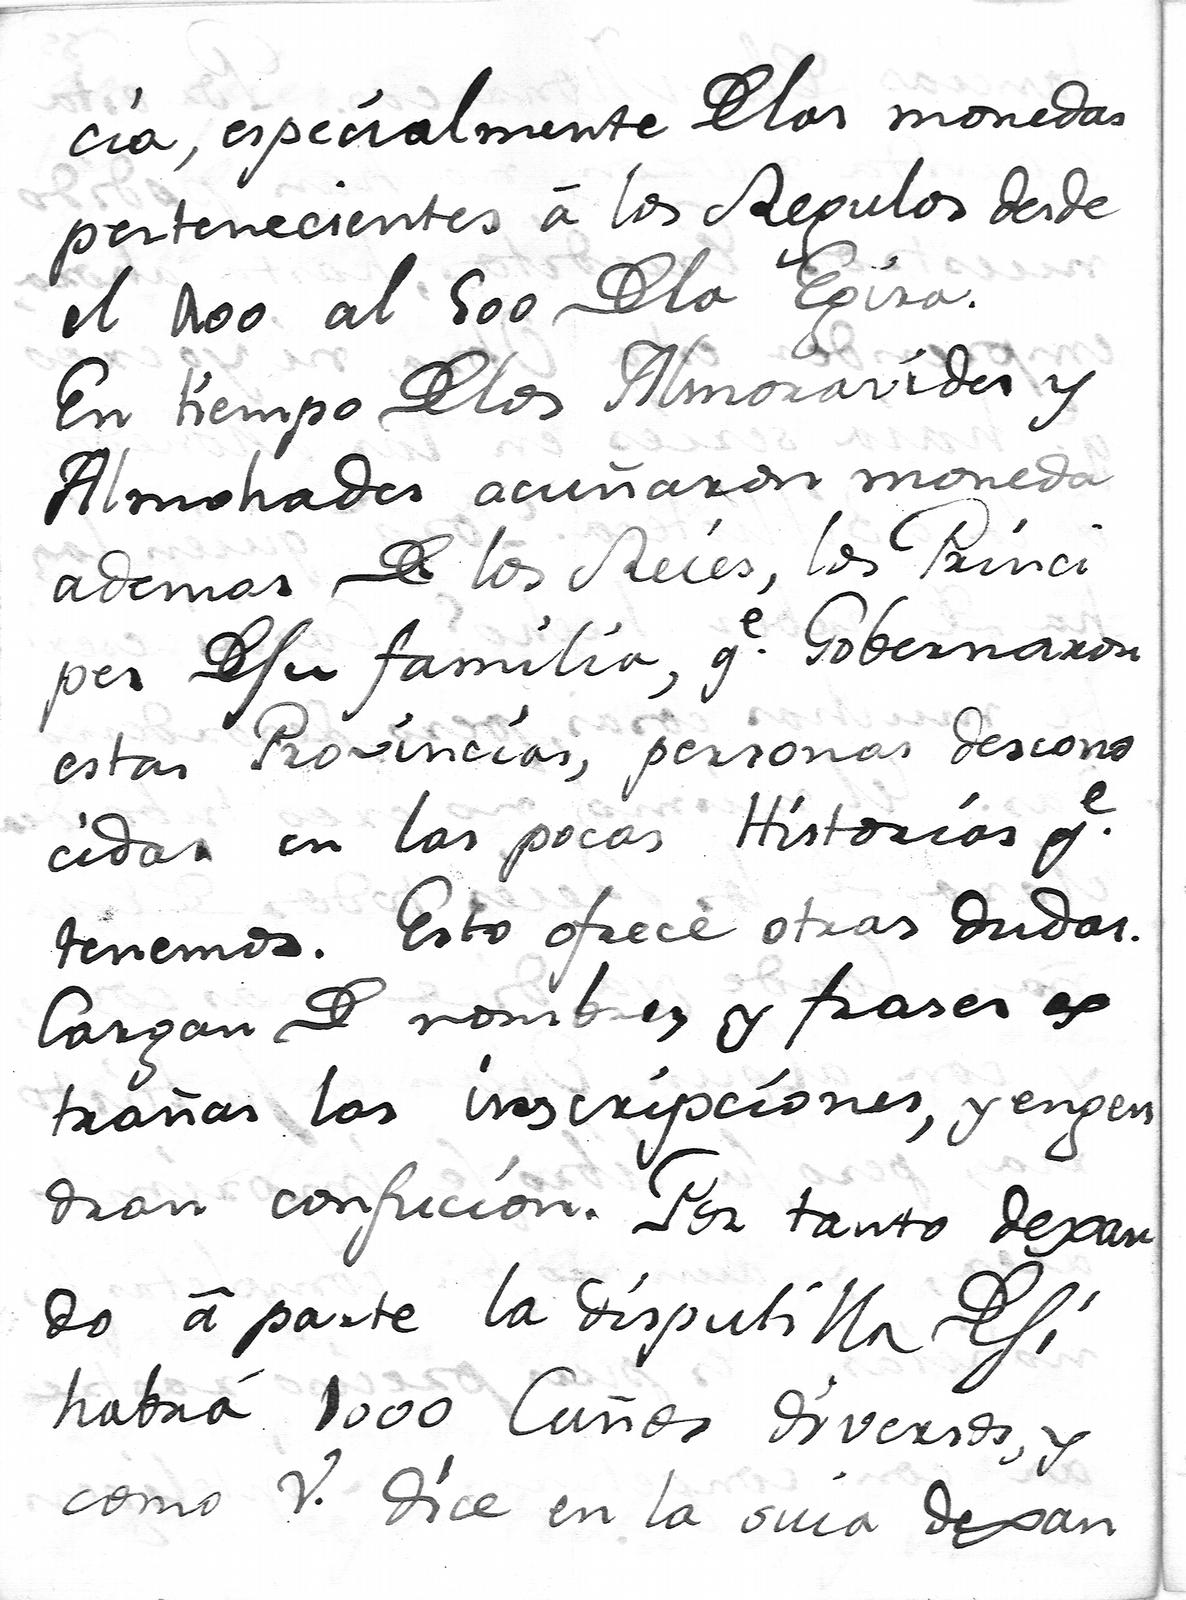 cia, especialmente Delas monedas
pertenecientes â los Regulos desde
el 400 al 500 Dela Egira.
En tiempo Delos Almoravides y
Almohades acuñaron moneda
ademas De los Reies, los Princi
pes Desu familia, qe. Gobernaron
estas Provincias, personas descono
cidas en las pocas Historias qe.
tenemos. Esto ofrece otras dudas.
Cargan De nombres y frases ex
trañas las inscripciones, y engen
dran confucion. Por tanto dexan
do â parte la disputilla Desi
habrá 1000 Cuños diversos, y
como V. dice en la suia dexan